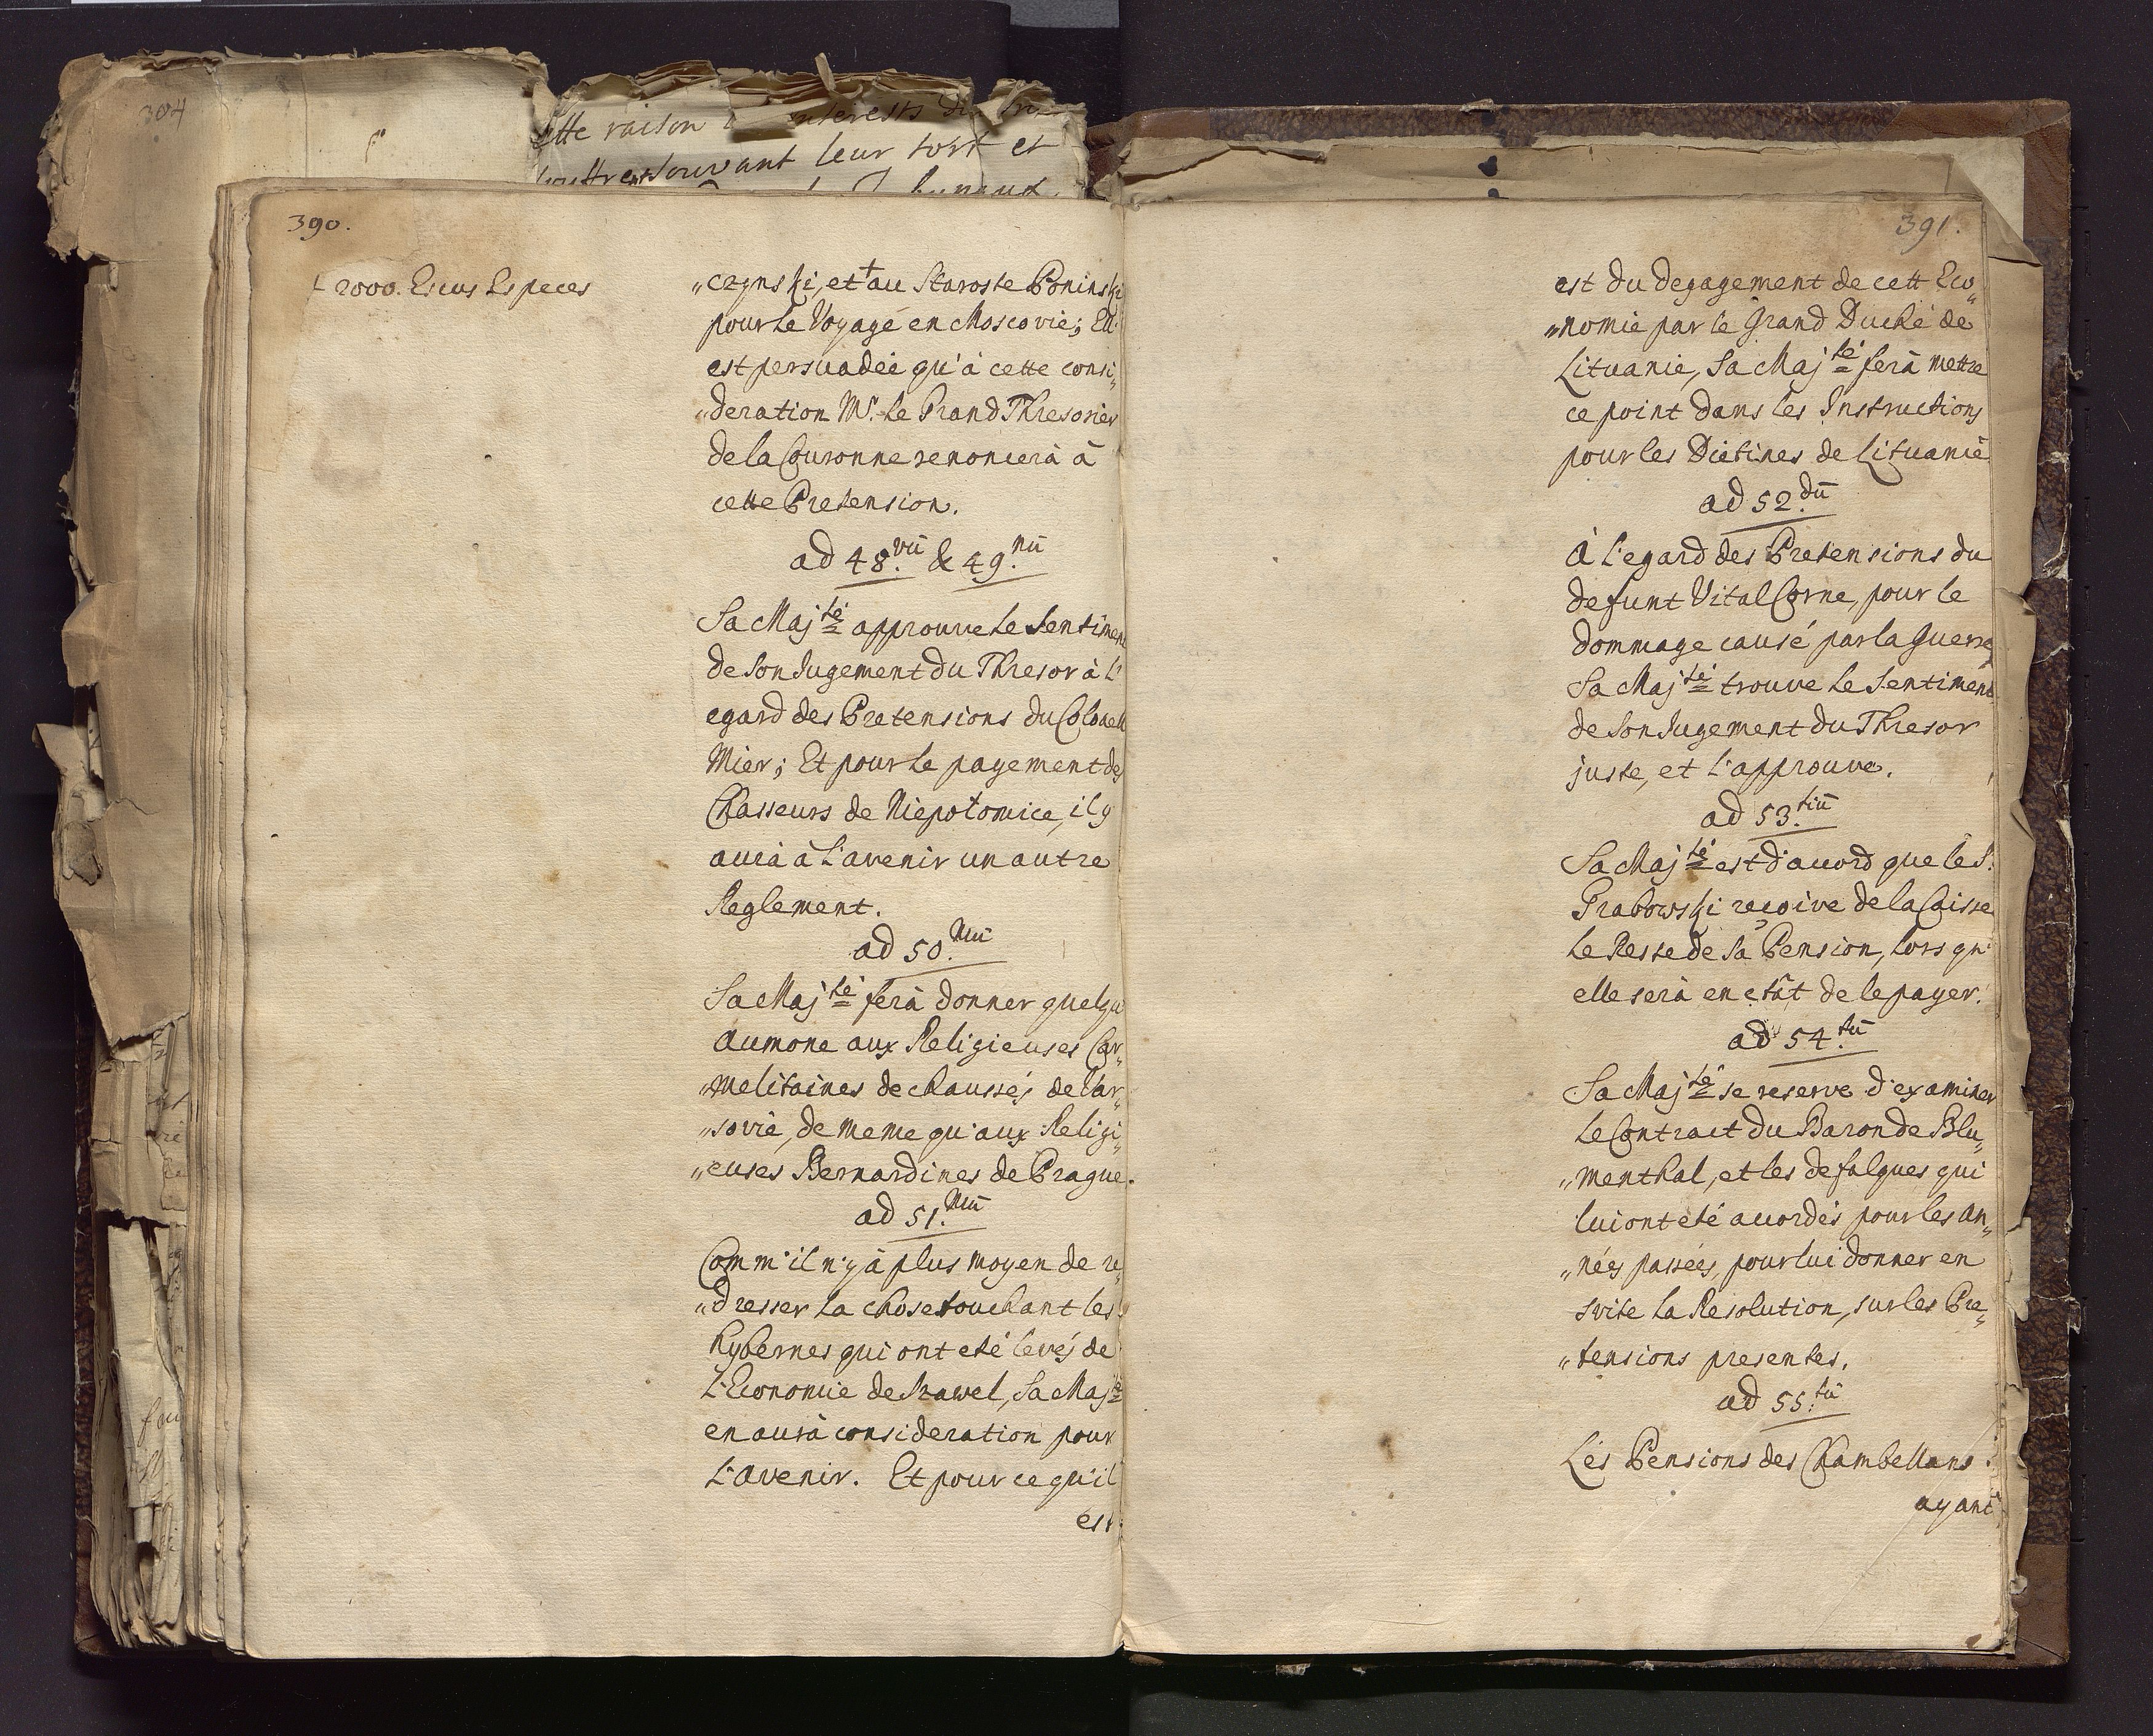 304
cette raison
leur tort et
390.
+ 2000. Ecus Especes
„czynski, et + au Staroste Poninski
pour le Voyage en Moscovie; Ell'
est persuadée qu'à cette consi„
„deration Mr. le Grand Thresorier
de la Couronne renoncerà à
cette Pretension.
ad 48.vũ & 49.nũ
Sa Majté approuve le Sentiment
de Son Jugement du Thresor à l'
egard des Pretensions du Colonell
Mier; Et pour le payement des
Chasseurs de Niepolomice, il y
aurà à l'avenir un autre
Reglement.
ad 50.mũ
Sa Majté ferà donner quelqu'
aumone aux Religieuses Car„
„melitaines dechaussés de Var„
„sovie, de meme qu'aux Religi„
„euses Bernardines de Prague.
ad 51.mũ
Comm' il n'y à plus moyen de re„
„dresser la chose touchant les
Hybernes qui ont eté levés de
L'Economie de Szawel, Sa Majté
en aurà consideration pour
L'avenir. Et pour ce qu'il
est
391.
est du degagement de cett Eco„
„nomie par le Grand Duché de
Lituanie, Sa Majté ferà mettre
ce point dans les Instructions
pour les Dietines de Lituanie
ad 52.dũ
À l'egard des Pretensions du
defunt Vital Corne, pour le
dommage causé par la Guerre
Sa Majté trouve le Sentiment
de Son Jugement du Thresor
juste, et l'approuve.
ad 53.tiũ
Sa Majté est d'acord que le S.
Grabowski reçoive de la Caisse
le Reste de Sa Pension, lors qu'
elle serà en etât de le payer.
ad 54.tũ
Sa Majté se reserve d'examiner
le Contract du Baron de Blu„
„menthal, et les defalques qui
lui ont eté acordés pour les an„
„nées passées, pour lui donner en
svite la Resolution, sur les Pre„
„tensions presentes.
ad 55.tũ
Les Pensions des Chambellans
ayant